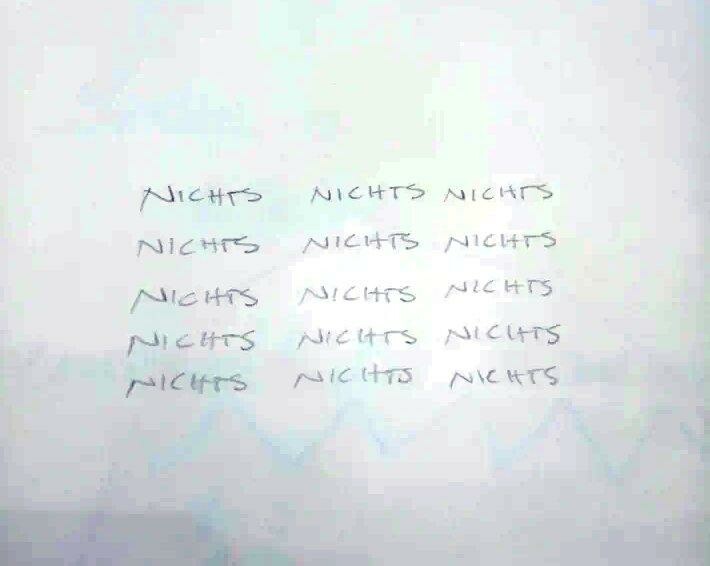 NICHTS NICHTS NICHTS
NICHTS NICHTS NICHTS
NICHTS NICHTS NICHTS
NICHTS NICHTS NICHTS
NICHTS NICHTS NICHTS